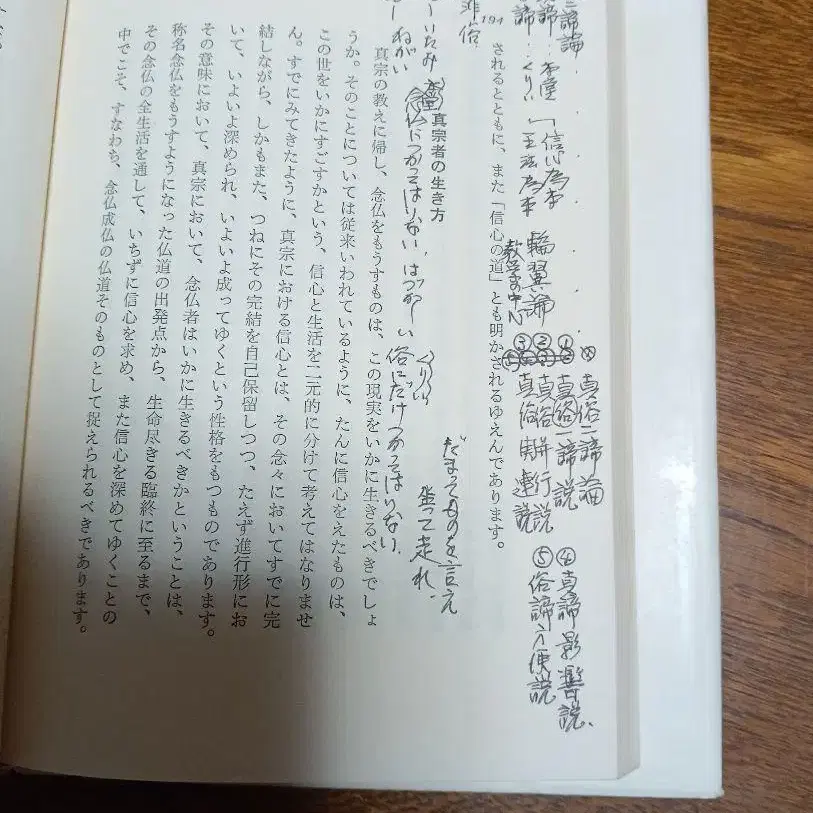 三諦論
諦‥本堂「信心為本
諦‥くりい「王法為本
輪翼論
教学の中心
※真俗二諦論
①真俗一諦説
②真俗並行説
③真俗関連説
④真諦影響説、
⑤俗諦方便説
非俗
191
されるとともに、また「信心の道」とも明かされるゆえんであります。
だまってものを言え
坐って走れ、
いたみ
ねがい
真宗者の生き方
本堂
念仏につかってはりない、
くりい
俗にだけつかってはりない、
真宗の教えに帰し、念仏をもうすものは、この現実をいかに生きるべきでしょ
うか。そのことについては従来いわれているように、たんに信心をえたものは、
この世をいかにすごすかという、信心と生活を二元的に分けて考えてはなりませ
ん。すでにみてきたように、真宗における信心とは、その念々においてすでに完
結しながら、しかもまた、つねにその完結を自己保留しつつ、たえず進行形にお
いて、いよいよ深められ、いよいよ成ってゆくという性格をもつものであります。
その意味において、真宗において、念仏者はいかに生きるべきかということは、
称名念仏をもうすようになった仏道の出発点から、生命尽きる臨終に至るまで、
その念仏の全生活を通して、いちずに信心を求め、また信心を深めてゆくことの
中でこそ、すなわち、念仏成仏の仏道そのものとして捉えられるべきであります。